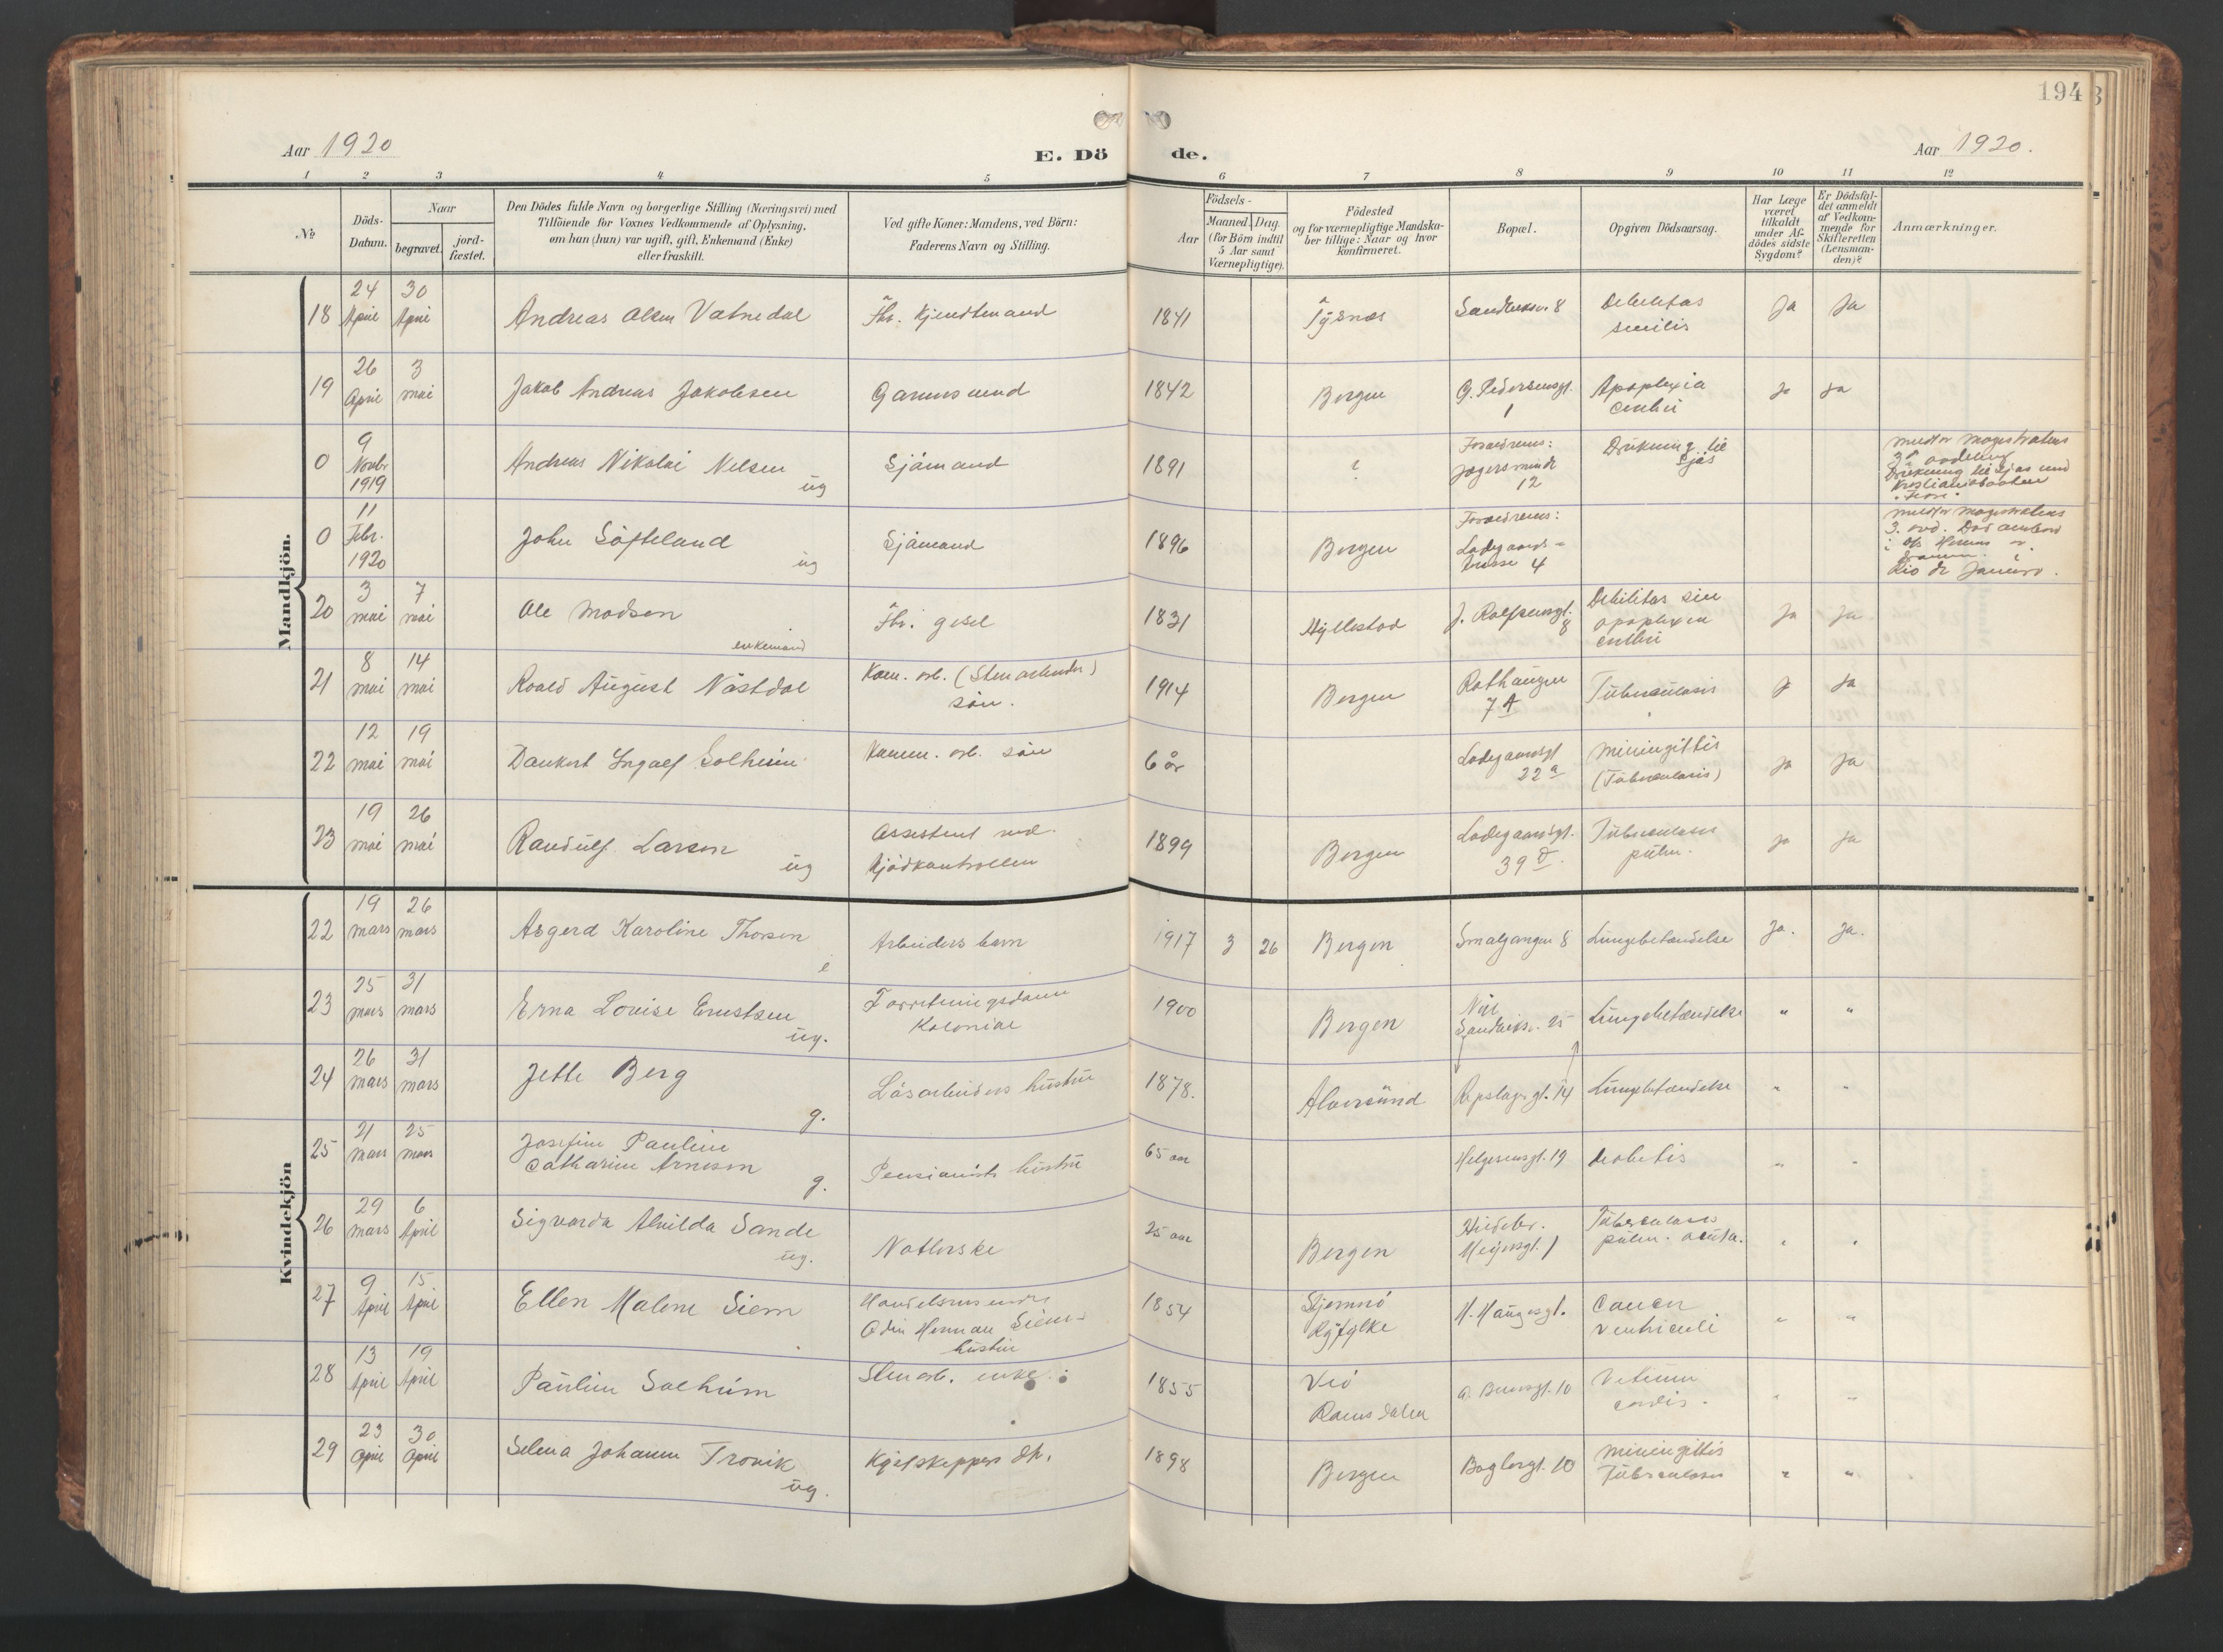 194
Aar 1920
E. Dö de.
Aar 1920.
1 2 3 4 5 6 7 8 9 10 11 12
№
Döds-Datum.
Naar
begravet.
jord-fæstet.
Den Dödes fulde Navn og borgerlige Stilling (Næringsvei) med
Tilföiende for Voxnes Vedkommende af Oplysning,
om han (hun) var ugift, gift, Enkemand (Enke)
eller fraskilt.
Ved gifte Koner: Mandens, ved Börn:
Faderens Navn og Stilling.
Födsels-
Aar
Maaned. Dag.
(for Börn indtil
5 Aar samt
Værnepligtige).
Födested
og for værnepligtige Mandska-
ber tillige: Naar og hvor
konfirmeret.
Bopæl.
Opgiven Dödsaarsag.
Har Læge
været
tilkaldt
under Af-
dödes sidste
Sygdom?
Er Dödsfal-
det anmeldt
af Vedkom-
mende for
Skifteretten
(Lensman-
den)?
Anmærkninger.
Mandkjön.
18 24 April 30 April Andreas Olsen Vatnedal Fhv. Kjendtmand 1841 Tysnes Sandviksv. 8 Debilitas senilis Ja Ja
19 26 April 3 mai Jakob Andreas Jakobsen Garnisund 1842 Bergen G. Pedersensgt. 1 Apoplexia cerebri Ja Ja
0 9 Novbr 1919 Andreas Nikolai Nelsen ug Sjømand 1891 Forældrenes: Jægersminde 12 Drukning til Sjøs
0 11 Febr. 1920 John Söfteland ug Sjömand 1896 Bergen Forældrenes: Ladegaards- 4 Rio de Janeiro.
20 3 mai 7 mai Ole Madsen enkemand Fhv. gesel 1831 Hyllestad J. Rolfsensgt. 8 Debilitas sen apoplexia cerebri Ja Ja
21 8 mai 14 mai Roald August Nåstdal Kom. arb. (Stenarbeider) sön. 1914 Bergen Rothaugen 7 A Tuberculosis Ja Ja
22 12 mai 19 mai Dankert Ingolf Solheim Komm. arb. sön 6 år Ladegaardsgt 22 a meningittis (Tuberculosis) Ja Ja
23 19 mai 26 mai Randulf Larsen ug Assistent ved Kjödkontrollen 1899 Bergen Ladegaardsgt. 39 Tuberculosis pulm. Ja Ja
Kvindekjön
22 19 mars 26 mars Asgerd Karoline Thorsen Arbeiders barn 1917 3 26 Bergen Smalgangen 8 Lungebetændelse Ja. Ja.
23 25 mars 31 mars Erna Lovise Ernstsen ug. Forretningsdame Kolonial 1900 Bergen Sandviksv. 25 Lungebetændelse " "
24 26 mars 31 mars Jette Berg g. Løsarbeiders hustru 1878. Alversund Repslagergt. 14 Lungebetændelse " "
25 21 mars 25 mars Josefine Pauline Catharine Arnesen g. Pensionists hustru 65 aar Helgesensgt. 19 diabetis " "
26 29 mars 6 April Sigvarda Alvilda Sande ug. Natlerske 25 aar Bergen Meyersgt. 1 Tuberculosis pulm. acuta. " "
27 9 April 15 April Ellen Malene Siem Odin Herman Siems hustru 1854 Stjernrö Ryfylke H. Haugesgt. Cancer ventriculi " "
28 13 April 19 April Pauline Solheim Stenarb. enke 1855 Veö Romsdalen 10 Vitium cordis. " "
29 23 April 30 April Selma Johanne Trovik ug. Kjelskeppers dt. 1898 Bergen Baglergt. 10 meningittis Tuberculosis " "